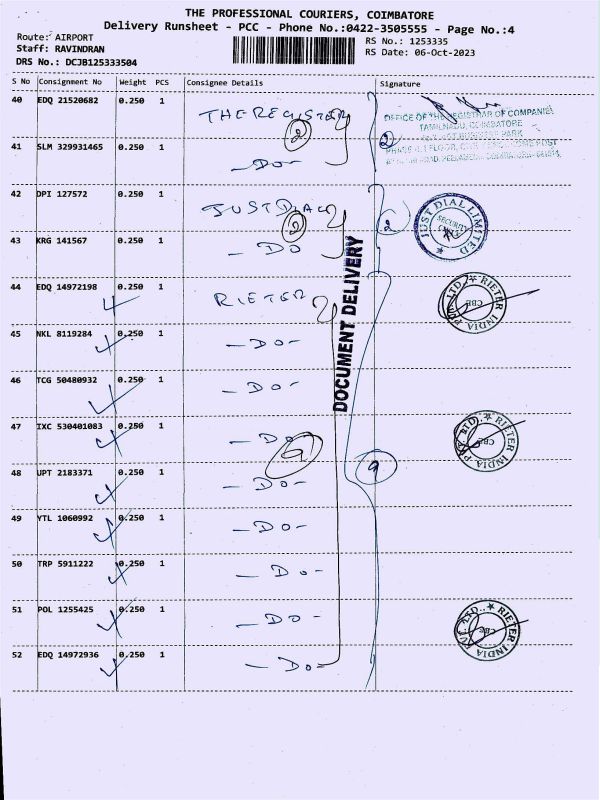 THE PROFESSIONAL COURIERS, COIMBATORE
Delivery Runsheet - PCC - Phone No.:0422-3505555 - Page No.:4
Route: AIRPORT
RS No.: 1253335
Staff: RAVINDRAN
RS Date: 06-Oct-2023
DRS No.: DCJB125333504
S No Consignment No Weight PCS Consignee Details Signature
40 EDQ 21520682 0.250 1 THE REGISTER
2
OFFICE OF THE REGISTRAR OF COMPANIES
TAMILNADU, COIMBATORE
2
41 SLM 329931465 0.250 1 -Do-
42 DPI 127572 0.250 1 JUSTDIAL
2 2
JUST DIAL LIMITED
SECURITY
43 KRG 141567 0.250 1 - DO
DOCUMENT DELIVERY
44 EDQ 14972198 0.250 1 RIETER
RIETER INDIA PVT. LTD.
CBE
45 NKL 8119284 0.250 1 -DO-
46 TCG 50480932 0.250 1 -DO-
47 IXC 530401083 0.250 1 -Do
9 9
RIETER INDIA PVT. LTD.
CBE
48 UPT 2183371 0.250 1 -DO-
49 YTL 1060992 0.250 1 -DO-
50 TRP 5911222 0.250 1 -Do-
51 POL 1255425 0.250 1 -DO-
RIETER INDIA PVT. LTD.
CBE
52 EDQ 14972936 0.250 1 -Do-